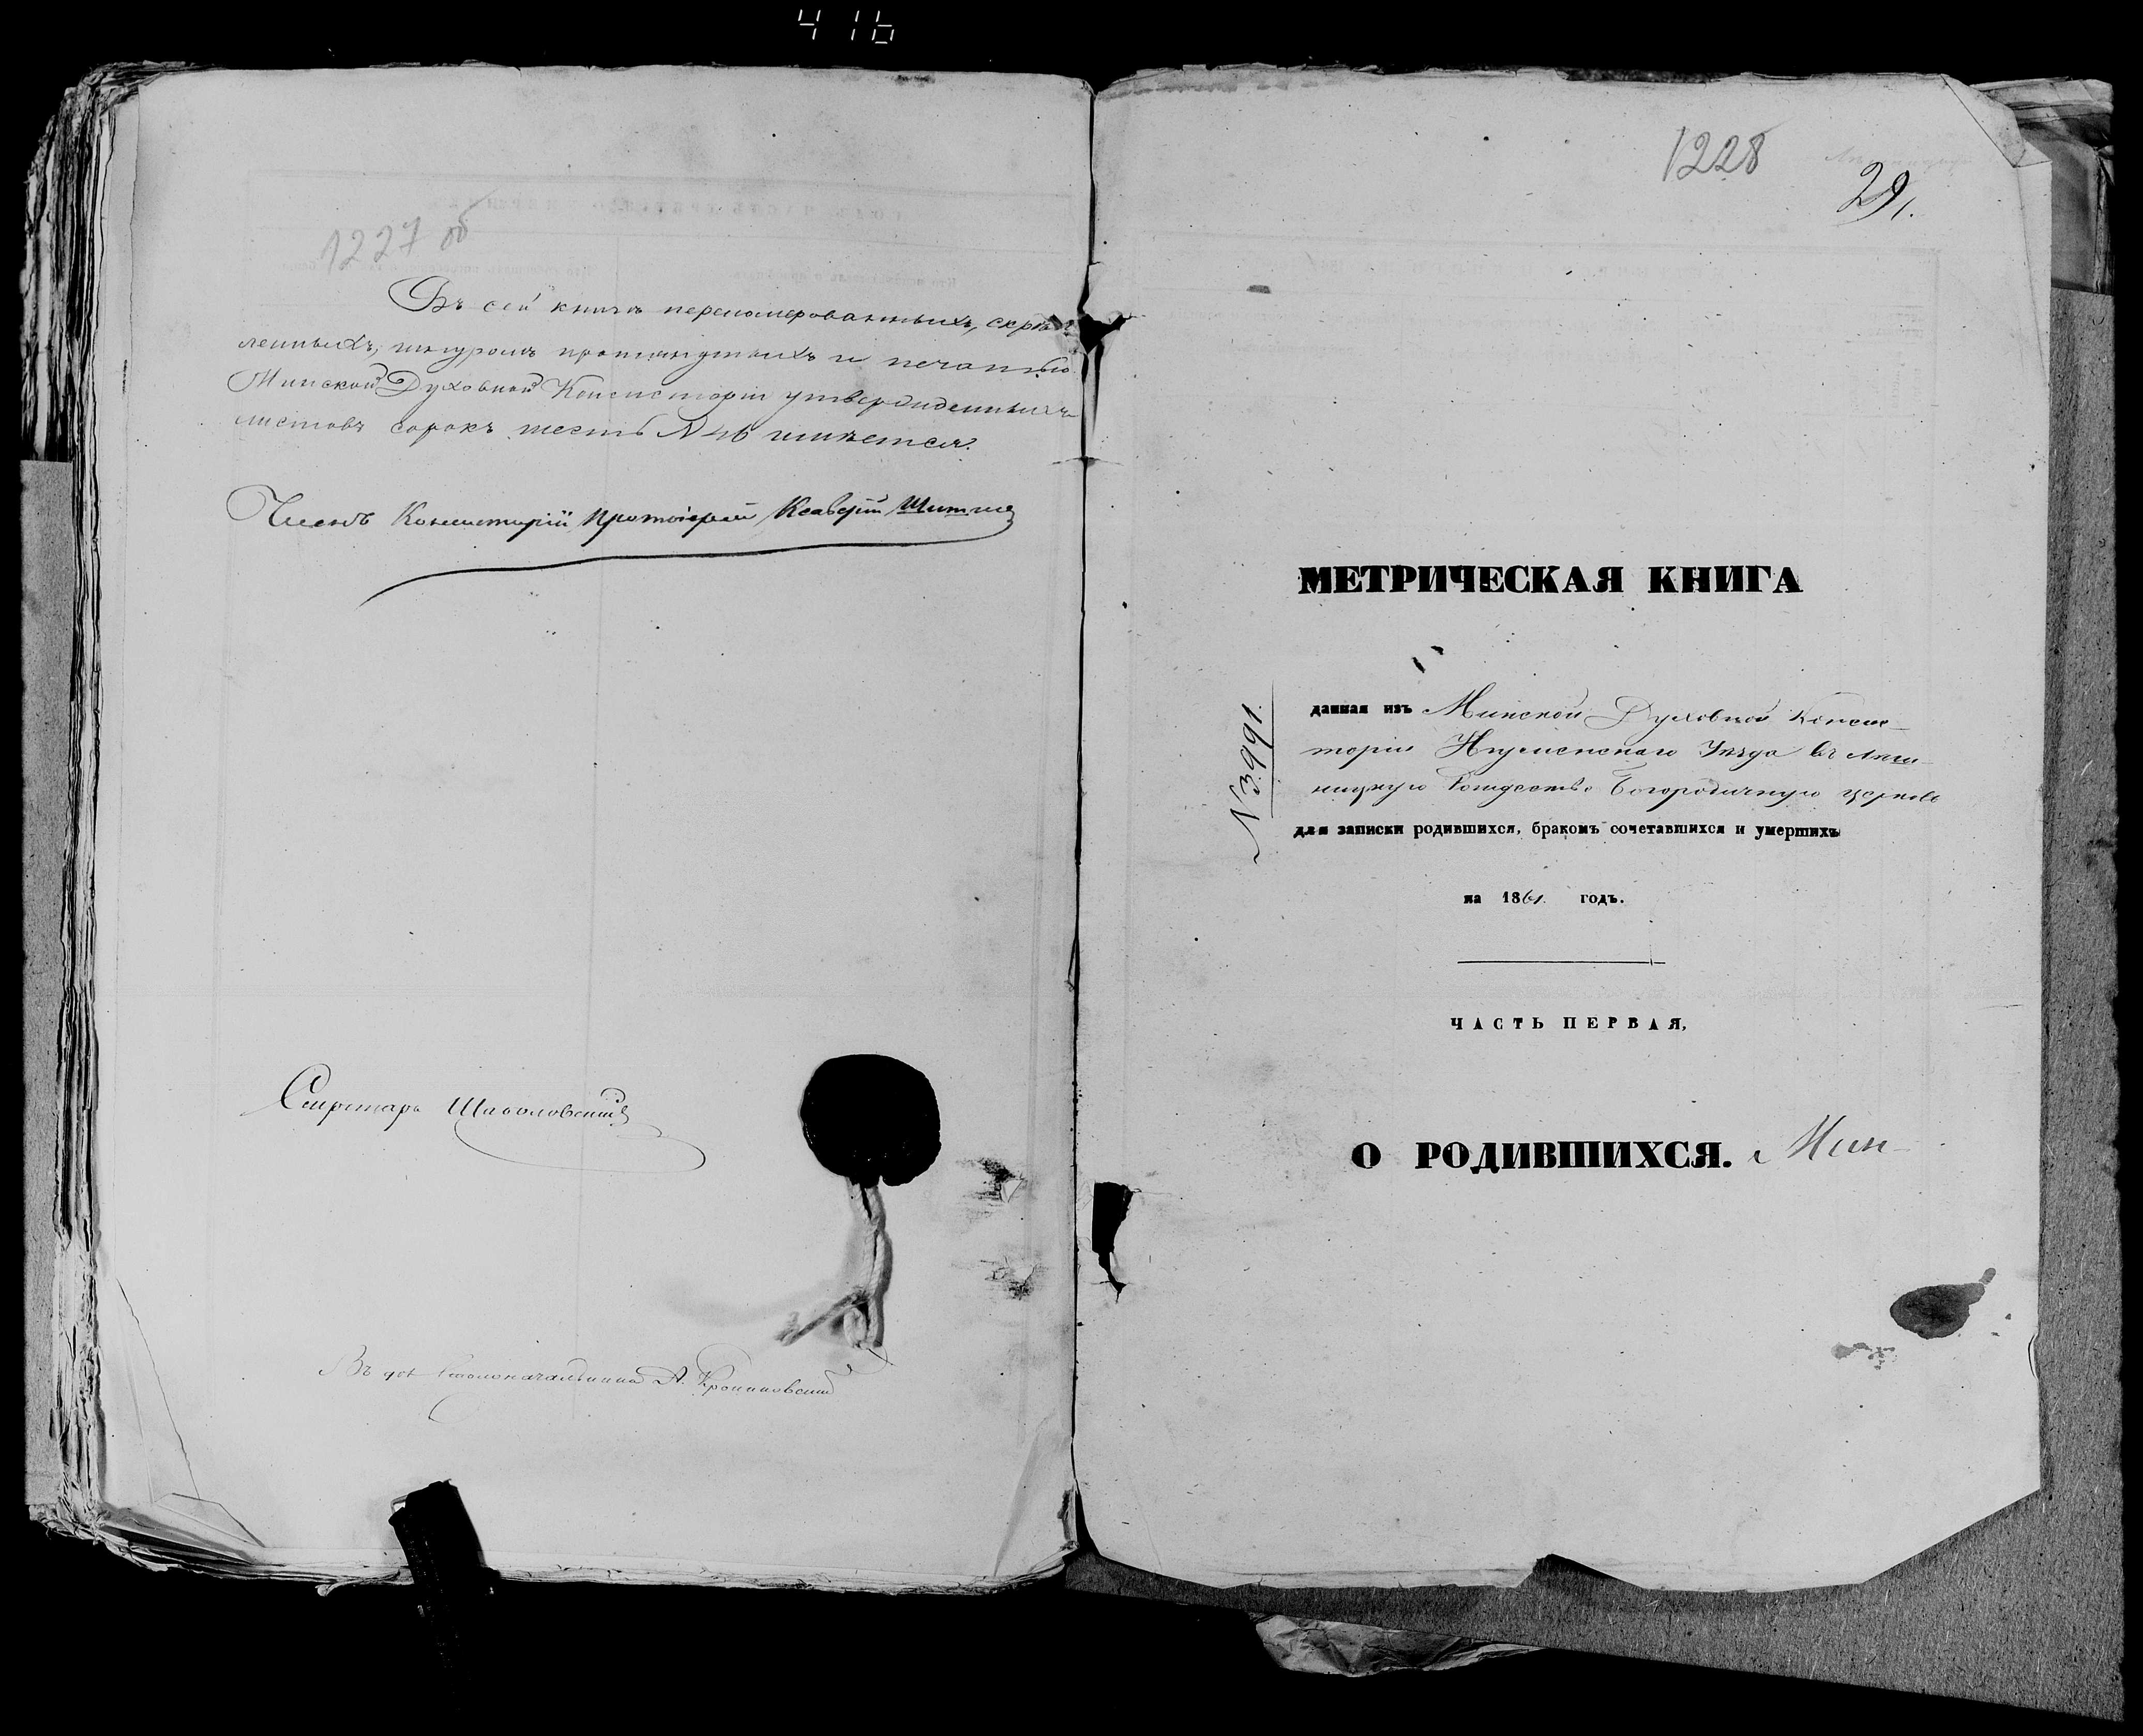 416
1227 об
Въ сей книгѣ перенумерованныхъ, скрѣп
ленныхъ, шнуромъ протянутыхъ и печатью
Минской Духовной Консисторіи утвержденныхъ
листовъ сорокъ шесть N 46 имѣется.
Членъ Консисторіи Протоіерей Ксаверій
Секретарь
Въ дол Столоначальника А.
1228
29,
МЕТРИЧЕСКАЯ КНИГА
N 3991.
данная изъ Минской Духовной Консис-
торіи Игуменскаго Уѣзда въ
Рождество Богородичную церковь
для записки родившихся, бракомъ сочетавшихся и умершихъ
на 1861. годъ.
ЧАСТЬ ПЕРВАЯ,
О РОДИВШИХСЯ. Мин-